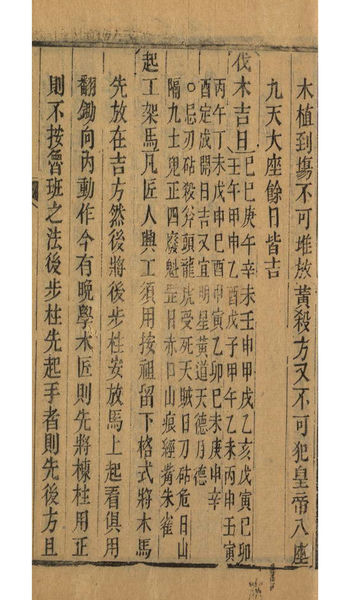 木植到塲不可堆放黃殺方又不可犯皇帝八座
九天大座餘日皆吉
伐木吉日
己巳庚午辛未壬申甲戌乙亥戊寅己卯
壬午甲申乙酉戊子甲午乙未丙申壬寅
丙午丁未戊申己酉甲寅乙卯己未庚申辛
酉定成開日吉又宜明星黃道天德月德
○忌刃砧殺斧頭龍虎受死天賊日刀砧危日山
隔九土鬼正四廢魁罡日赤口山痕經觜朱雀
起工架馬凡匠人興工須用按祖留下格式將木馬
先放在吉方然後將後步柱安放馬上起看俱用
翻鋤向內動作今有晚學木匠則先將棟柱用正
則不按魯班之法後步柱先起手者則先後方且